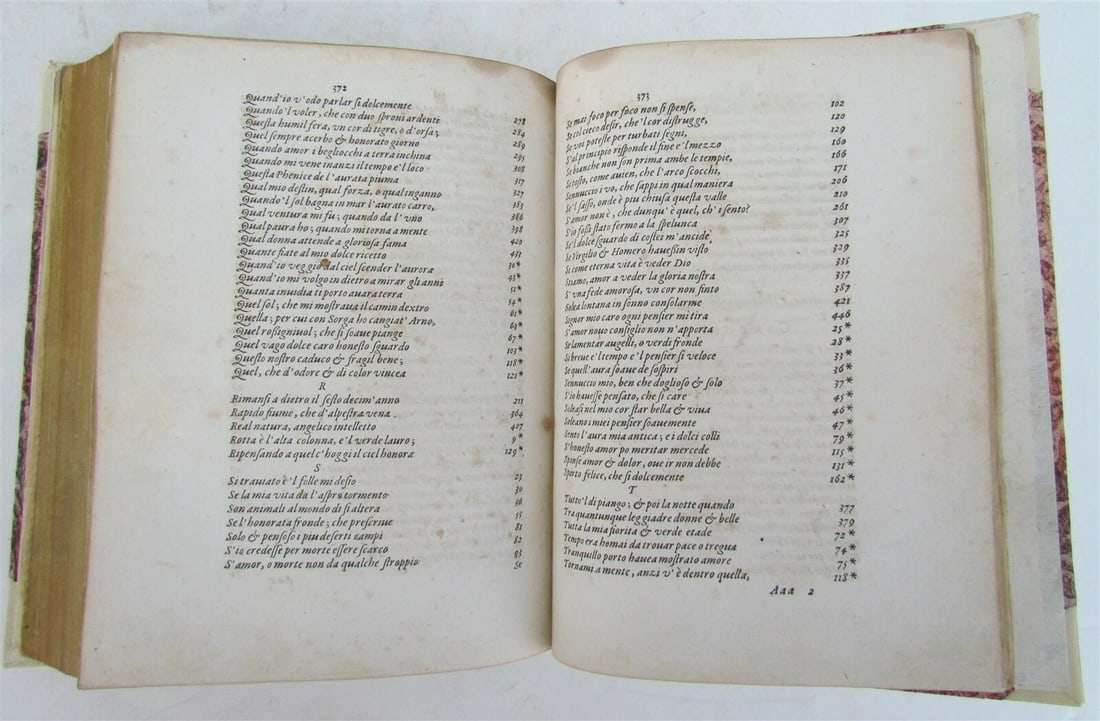 372
Quand'io v'odo parlar ſi dolcemente
Quand'l voler, che con duo ſproni ardenti 278
Queſta humil fera, vn cor di tigre, o d'orſa; 284
Quel ſempre acerbo & honorato giorno 289
Quando amor i begliocchi a terra inchina 295
Quando mi vene inanzi il tempo e'l loco 308
Queſta Phenice de l'aurata piuma 317
Qual mio deſtin, qual forza, o qual inganno 327
Quando'l ſol bagna in mar l'aurato carro, 383
Qual ventura mi fu; quando da l'vno 386
Qual paura ho; quando mi torna a mente 398
Qual donna attende a glorioſa fama 420
Quante fiate al mio dolce ricetto 433
Quand'io veggio dal ciel ſcender l'aurora 30*
Quand'io mi volgo in dietro a mirar gli anni 43*
Quanta inuidia ti porto auara terra 51*
Quel ſol; che mi moſtraua il camin dextro 54*
Quella; per cui con Sorga ho cangiat'Arno, 61*
Quel roſigniuol; che ſi ſoaue piange 63*
Quel vago dolce caro honeſto ſguardo 67*
Queſto noſtro caduco & fragil bene; 103*
Quel, che d'odore & di color vincea 118*
121*
R
Rimanſi a dietro il ſeſto decim'anno 211
Rapido fiume, che d'alpeſtra vena. 364
Real natura, angelico intelletto 407
Rotta è l'alta colonna, e'l verde lauro; 9*
Ripenſando a quel c'hoggi il ciel honora 129*
S
Si trauiato è'l folle mi deſio 23
Se la mia vita da l'aſpro tormento 30
Son animali al mondo di ſi altera 36
Se l'honorata fronde; che preſcriue 55
Solo & penſoſo i piu deſerti campi 81
S'io credeſſe per morte eſſere ſcarco 82
S'amor, o morte non da qualche ſtroppio 93
373
Se mai foco per foco non ſi ſpenſe, 102
Se col cieco deſir, che'l cor diſtrugge, 120
Se voi poteſte per turbati ſegni, 129
S'al principio riſponde il fine e'l mezzo 160
Se bianche non ſon prima ambe le tempie, 166
Si toſto, come auien, che l'arco ſcocchi, 171
Sennuccio i vo, che ſappi in qual maniera 206
Se'l ſaſſo, onde è piu chiuſa queſta valle 210
S'amor non è, che dunqu'è quel, ch'i ſento? 261
S'io foſſi ſtato fermo a la ſpelunca 307
Se'l dolce ſguardo di coſtei m'ancide 325
Se Virgilio & Homero haueſſin viſto 329
Si come eterna vita è veder Dio 335
Stiamo, amor a veder la gloria noſtra 337
S'vna fede amoroſa, vn cor non finto 387
Solea lontana in ſonno conſolarme 421
Signor mio caro ogni penſier mi tira 446
S'amor nouo conſiglio non n'apporta 25*
Se lamentar augelli, o verdi fronde 28*
Se breue e'l tempo e'l penſier ſi veloce 33*
Se quell'aura ſoaue de ſoſpiri 36*
Sennuccio mio, ben che doglioſo & ſolo 37*
S'io haueſſe penſato, che ſi care 45*
Soleaſi nel mio cor ſtar bella & viua 46*
Soleano i miei penſier ſoauemente 47*
Sento l'aura mia antica; e i dolci colli 79*
S'honeſto amor po meritar mercede 115*
Spinſe amor & dolor, oue ir non debbe 131*
Spirto felice, che ſi dolcemente 162*
T
Tutto'l di piango; & poi la notte quando 377
Tra quantunque leggiadre donne & belle 379
Tutta la mia fiorita & verde etade 72*
Tempo era homai da trouar pace o tregua 74*
Tranquillo porto hauea moſtrato amore 75*
Tornami a mente, anzi v'è dentro quella, 118*
Aaa 2